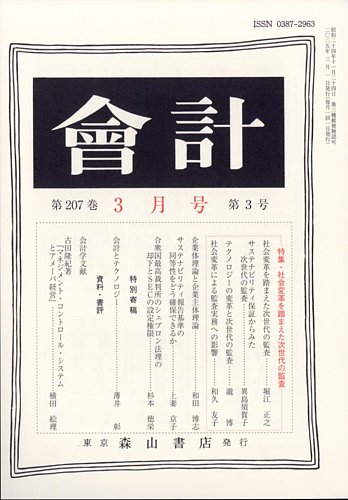 ISSN 0387-2963
會計
第207巻 3月号 第3号
特集・社会変革を踏まえた次世代の監査
社会変革を踏まえた次世代の監査……堀江 正之
サステナビリティ保証からみた
次世代の監査……異島須賀子
テクノロジーの変革と次世代の監査……瀧 博
社会変革による監査実務への影響……和久 友子
企業体理論と企業主体理論……和田 博志
サステナビリティ報告基準の
同等性をどう確保できるか……上妻 京子
合衆国最高裁判所のシェブロン法理の
却下とSECの設定権限……杉本 徳栄
特別寄稿
会計とテクノロジー……薄井 彰
資料・書評
会計学文献
古田隆紀著
『マネジメント・コントロール・システム
とアメーバ経営』……横田 絵理
東京 森山書店 発行